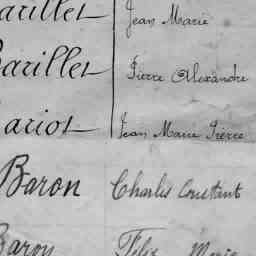 arillet Jean Marie
Barillet Pierre Alexandre
Bariot Jean Marie Pierre
Baron Charles Constant
Baron Félix Marie